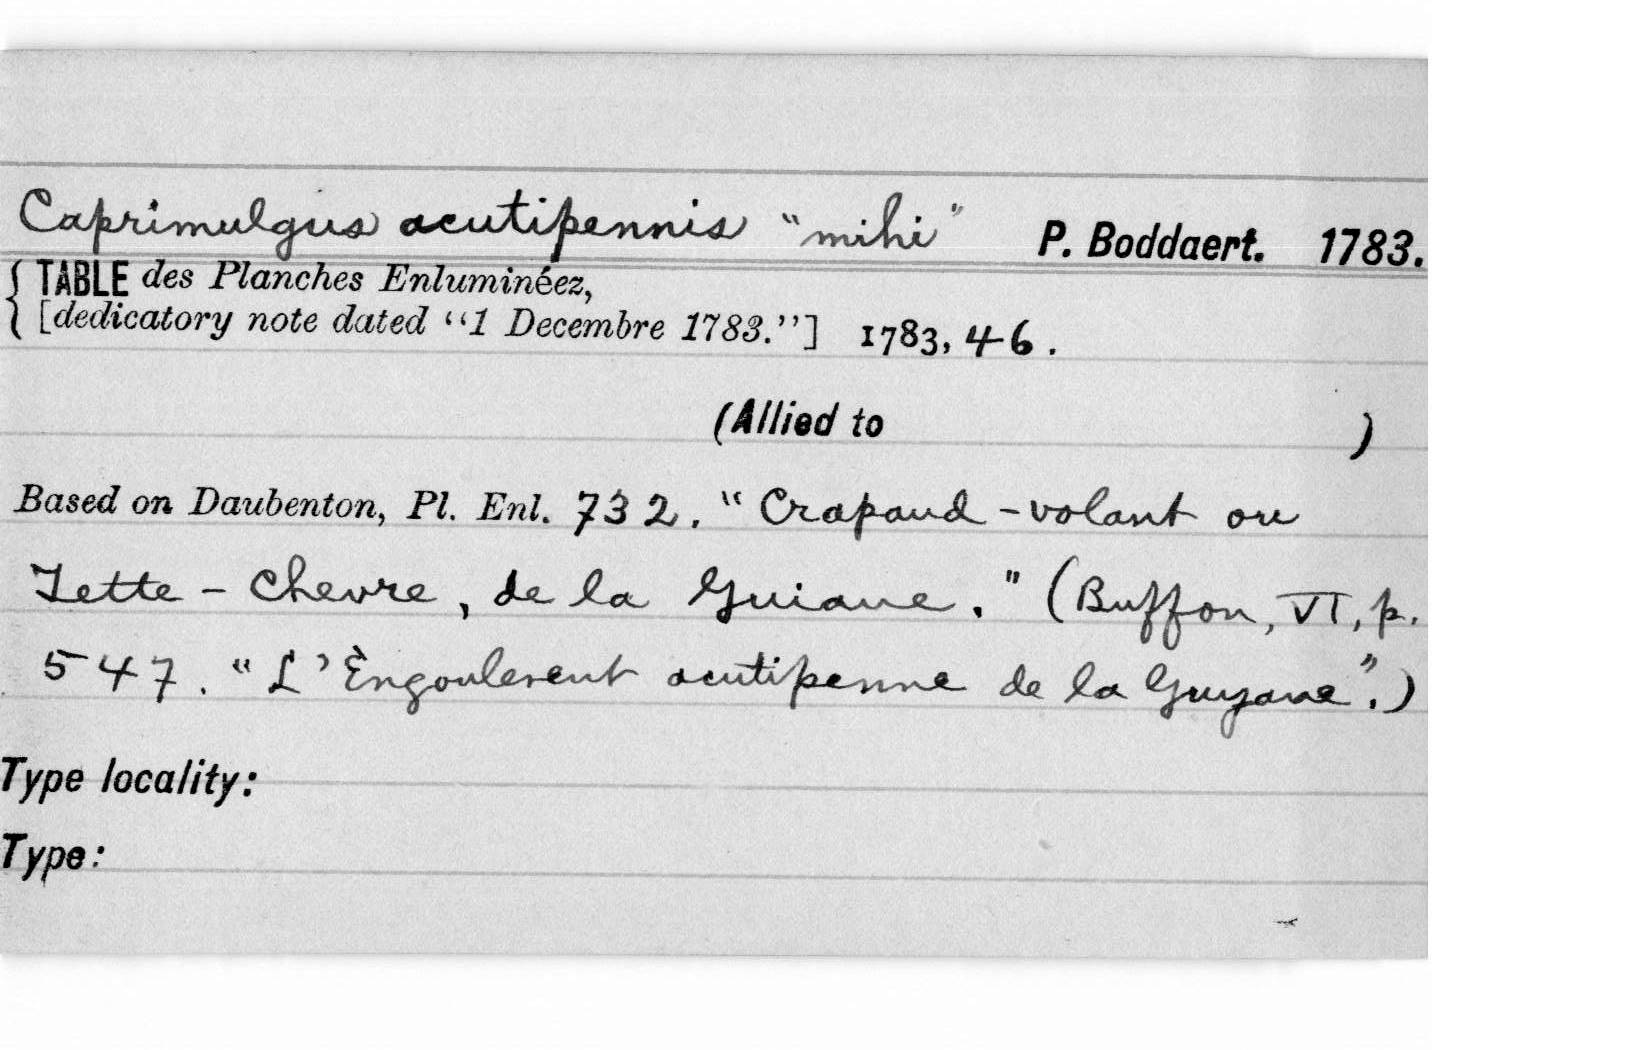 Caprimulgus acutipennis "mihi" P. Boddaert. 1783.
{ TABLE des Planches Enluminéez,
[dedicatory note dated "1 Decembre 1783."] 1783, 46.
(Allied to )
Based on Daubenton, Pl. Enl. 732. "Crapaud-volant ou
Tette-Chevre, de la Guiane." (Buffon, VI, p.
547. "L'Èngoulevent acutipenne de la Guyane".)
Type locality:
Type: